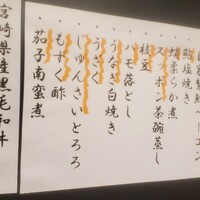 塩焼き
柔らか煮
スッポン茶碗蒸し
枝豆
ハモ落とし
うなぎ白焼き
うざく
じゅんさいとろろ
もずく酢
茄子南蛮煮
宮崎県産黒毛和牛